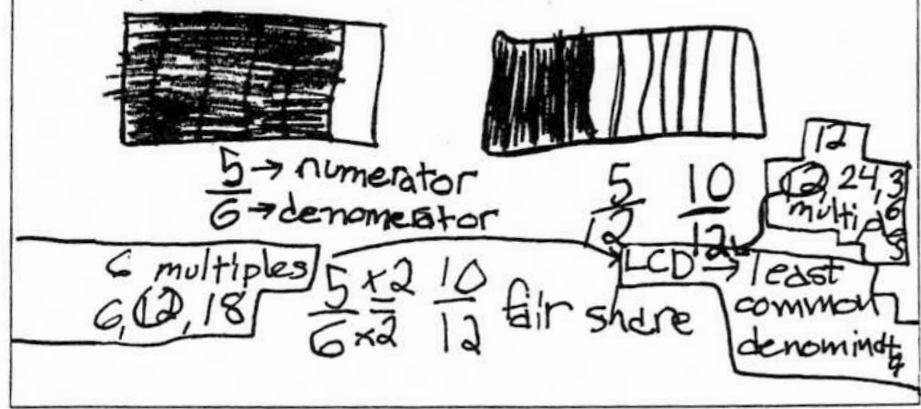 5 → numerator
6 → denomerator
5
12
10
12
12
12, 24, 36
multiples
6 multiples
6, 12, 18
5 x2 10
6 x2 12
fair share
LCD → least
common
denominator